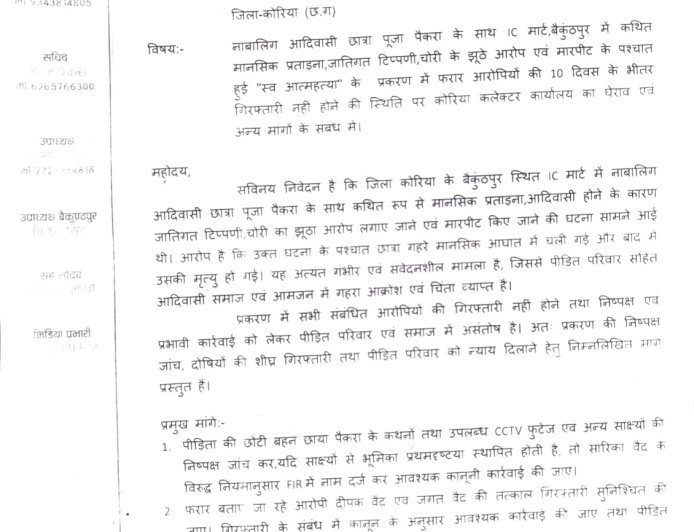 मो.9343814805
सचिव
मो.6265766300
उपाध्यक्ष
उपाध्यक्ष बैकुण्ठपुर
सह सचिव
मिडिया प्रभारी
जिला-कोरिया (छ.ग)
विषय:- नाबालिग आदिवासी छात्रा पूजा पैकरा के साथ IC मार्ट,बैकुंठपुर में कथित
मानसिक प्रताड़ना,जातिगत टिप्पणी,चोरी के झूठे आरोप एवं मारपीट के पश्चात
हुई "स्व आत्महत्या" के प्रकरण में फरार आरोपियों की 10 दिवस के भीतर
गिरफ्तारी नहीं होने की स्थिति पर कोरिया कलेक्टर कार्यालय का घेराव एवं
अन्य मागों के संबध में।
महोदय,
सविनय निवेदन है कि जिला कोरिया के बैकुंठपुर स्थित IC मार्ट में नाबालिग
आदिवासी छात्रा पूजा पैकरा के साथ कथित रूप से मानसिक प्रताड़ना,आदिवासी होने के कारण
जातिगत टिप्पणी,चोरी का झूठा आरोप लगाए जाने एवं मारपीट किए जाने की घटना सामने आई
थी। आरोप है कि उक्त घटना के पश्चात छात्रा गहरे मानसिक आघात में चली गई और बाद में
उसकी मृत्यु हो गई। यह अत्यत गंभीर एवं सवेदनशील मामला है, जिससे पीडित परिवार सहित
आदिवासी समाज एवं आमजन में गहरा आक्रोश एवं चिंता व्याप्त है।
प्रकरण में सभी संबधित आरोपियों की गिरफ्तारी नहीं होने तथा निष्पक्ष एव
प्रभावी कार्रवाई को लेकर पीडित परिवार एवं समाज मे असंतोष है। अतः प्रकरण की निष्पक्ष
जांच, दोषियों की शीघ्र गिरफ्तारी तथा पीडित परिवार को न्याय दिलाने हेतु निम्नलिखित माग
प्रस्तुत है।
प्रमुख मांगे:-
1. पीडिता की छोटी बहन छाया पैकरा के कथनों तथा उपलब्ध CCTV फुटेज एवं अन्य साक्ष्यों की
निष्पक्ष जांच कर,यदि साक्ष्यों से भूमिका प्रथमदृष्टया स्थापित होती है, तो सारिका वैद के
विरुद्ध नियमानुसार FIR में नाम दर्ज कर आवश्यक कानूनी कार्रवाई की जाए।
2. फरार बताए जा रहे आरोपी दीपक वैद एवं जगत वैद की तत्काल गिरफ्तारी सुनिश्चित की
जाए। गिरफ्तारी के संबंध में कानून के अनुसार आवश्यक कार्रवाई की जाए तथा पीडित